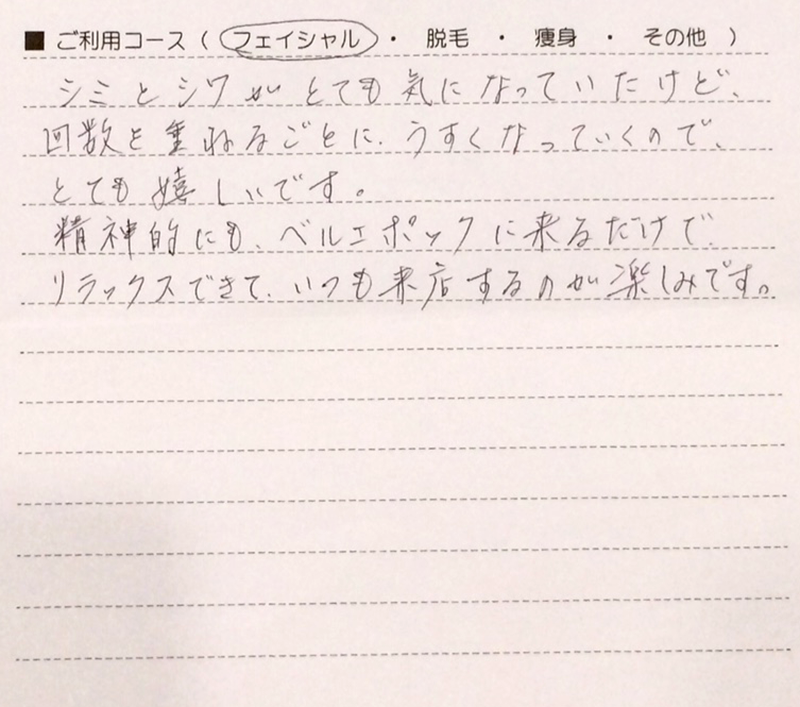 ■ ご利用コース（ フェイシャル ・ 脱毛 ・ 痩身 ・ その他 ）
シミとシワがとても気になっていたけど、
回数を重ねるごとに、うすくなっていくので、
とても嬉しいです。
精神的にも、ベルエポックに来るだけで、
リラックスできて、いつも来店するのが楽しみです。